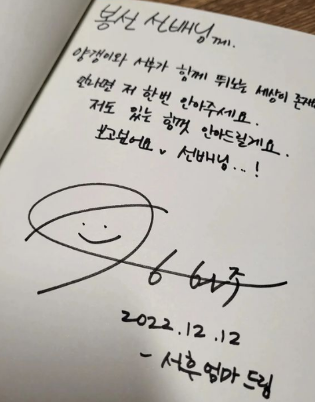 봉선 선배님께.
양갱이와 서후가 함께 뛰노는 세상이 존재
한다면 저 한번 안아주세요.
저도 있는 힘껏 안아드릴게요.
보고싶어요 선배님...!
2022.12.12
- 서후엄마 드림